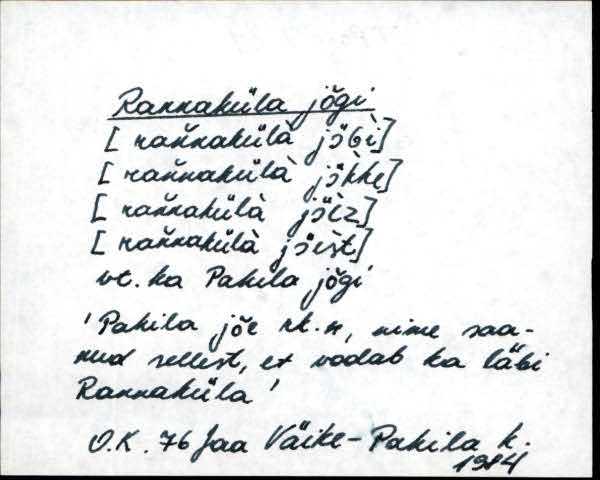 Rannaküla jõgi
[ rañnakülà jɔ̈Gì]
[ rañnakülà jɔ̈k̀ke]
[ rañnakülà jɔ̈èz]
[ rañnakülà jɔ̈èšt]
vt. ka Pahila jõgi
'Pahila jõe rk. n, nime saa-
nud sellest, et voolab ka läbi
Rannaküla'
O.K. 76 Jaa Väike-Pahila k.
1984